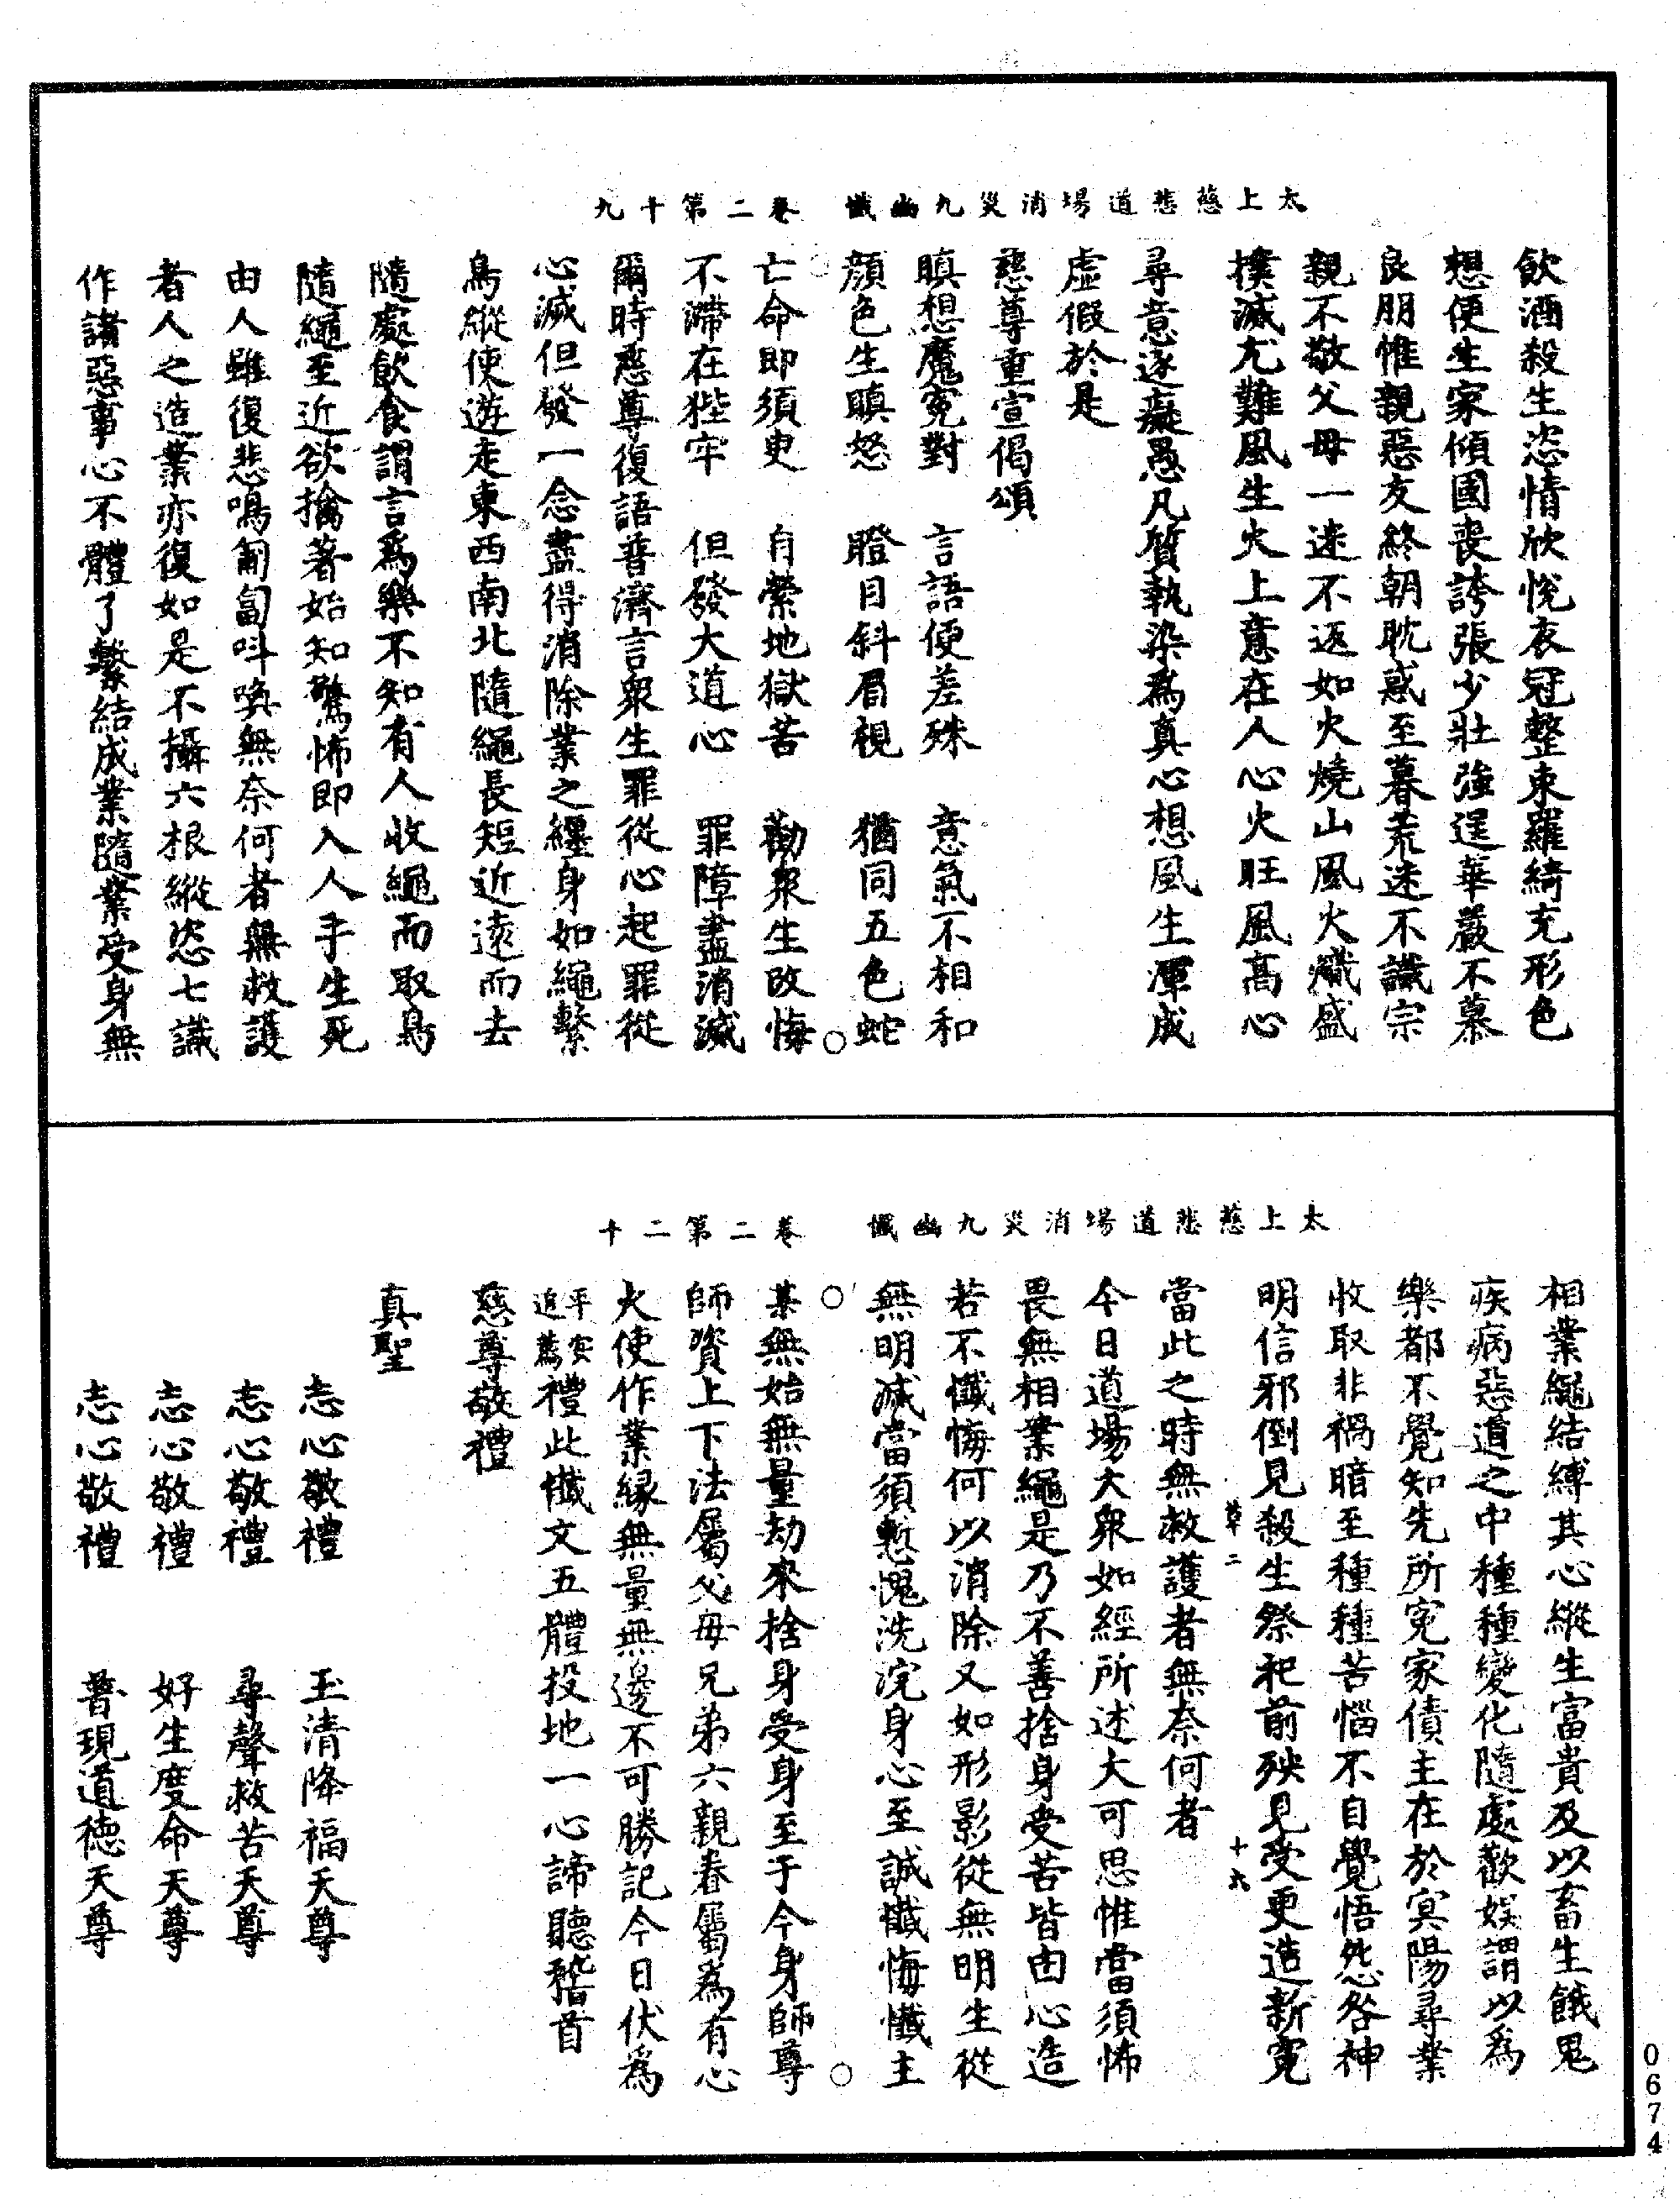 太上慈悲道場消災九幽懺　卷二第十九
飲酒殺生恣情欣悅衣冠整束羅綺充形色
想便生家傾國喪誇張少壯強逞華嚴不慕
良朋惟親惡友終朝耽惑至暮荒迷不識宗
親不敬父母一迷不返如火燒山風火熾盛
撲滅尤難風生火上意在人心火旺風高心
尋意逐癡愚凡質執染為真心想風生渾成
虛假於是
慈尊重宣偈頌
瞋想魔冤對　言語便差殊　意氣不相和
顏色生瞋怒　瞪目斜眉視　猶同五色蛇
亡命即須臾　自縈地獄苦　勸眾生改悔
不滯在狴牢　但發大道心　罪障盡消滅
爾時慈尊復語普濟言眾生罪從心起罪從
心滅但發一念盡得消除業之纏身如繩繫
鳥縱使遊走東西南北隨繩長短近遠而去
隨處飲食謂言為樂不知有人收繩而取鳥
隨繩至近欲擒著始知驚怖即入人手生死
由人雖復悲鳴匍匐叫喚無奈何者無救護
者人之造業亦復如是不攝六根縱恣七識
作諸惡事心不體了繫結成業隨業受身無
太上慈悲道場消災九幽懺　卷二第二十
相業繩結縛其心縱生富貴及以畜生餓鬼
疾病惡道之中種種變化隨處歡娛謂以為
樂都不覺知先所冤家債主在於冥陽尋業
收取非禍暗至種種苦惱不自覺悟怨咎神
明信邪倒見殺生祭祀前殃見受更造新冤
當此之時無救護者無奈何者
草二　十六
今日道場大眾如經所述大可思惟當須怖
畏無相業繩是乃不善捨身受苦皆由心造
若不懺悔何以消除又如形影從無明生從
無明滅當須慙愧洗浣身心至誠懺悔懺主
某無始無量劫來捨身受身至于今身師尊
師資上下法屬父母兄弟六親眷屬為有心
火使作業緣無量無邊不可勝記今日伏為
平安追薦禮此懺文五體投地一心諦聽稽首
慈尊敬禮
真聖
志心敬禮　玉清降福天尊
志心敬禮　尋聲救苦天尊
志心敬禮　好生度命天尊
志心敬禮　普現道德天尊
0674